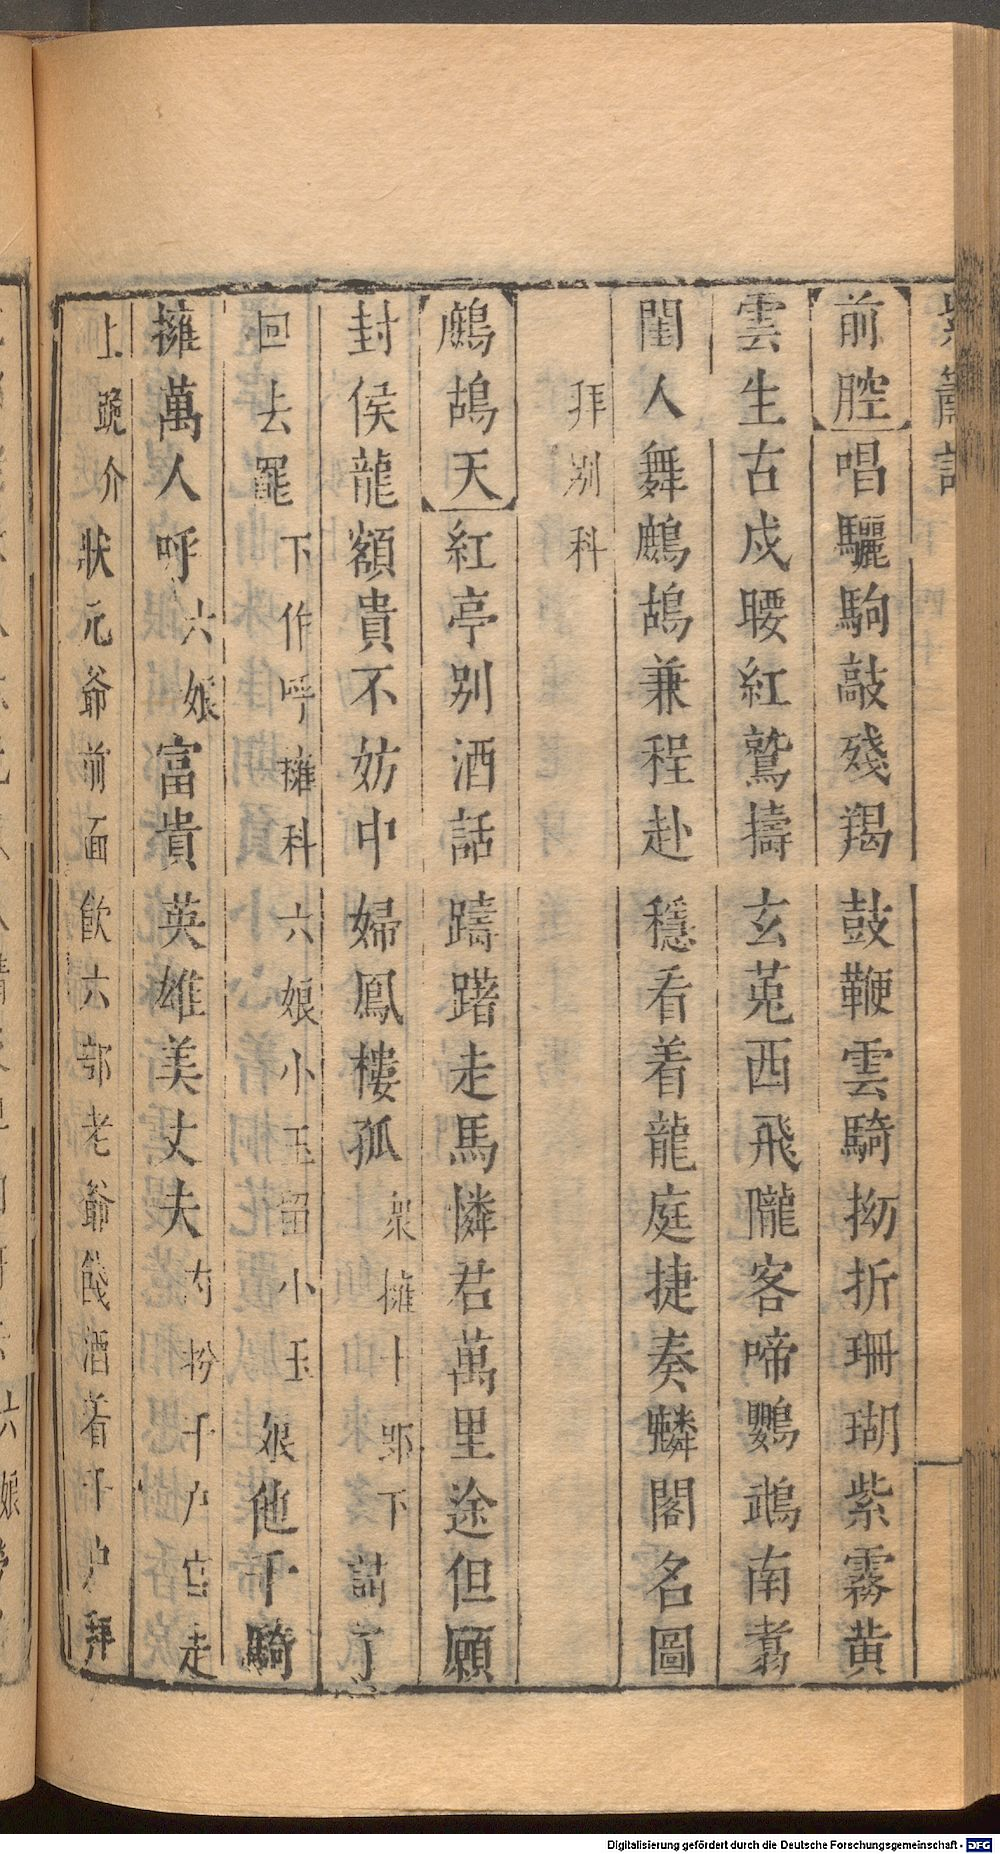 紫簫記
前腔唱驪駒敲殘羯鼓鞭雲騎拗折珊瑚紫霧黄
雲生古戍腰紅鷲擣玄菟西飛隴客啼鸚鵡南翥
閨人舞鷓鴣兼程赴穩看看龍庭捷奏麟閣名圖
拜别科
鷓鴣天紅亭别酒話躊躇走馬憐君萬里途但願
封侯龍額貴不妨中婦鳳樓孤衆擁十郎下請了
回去罷下作呼擁科六娘小玉留小玉娘他千騎
擁萬人呼六娘富貴英雄美丈夫内扮千户官走
上跪介狀元爺前面飲六部老爺餞酒着千户拜
六娘
Digitalisierung gefördert durch die Deutsche Forschungsgemeinschaft - DFG